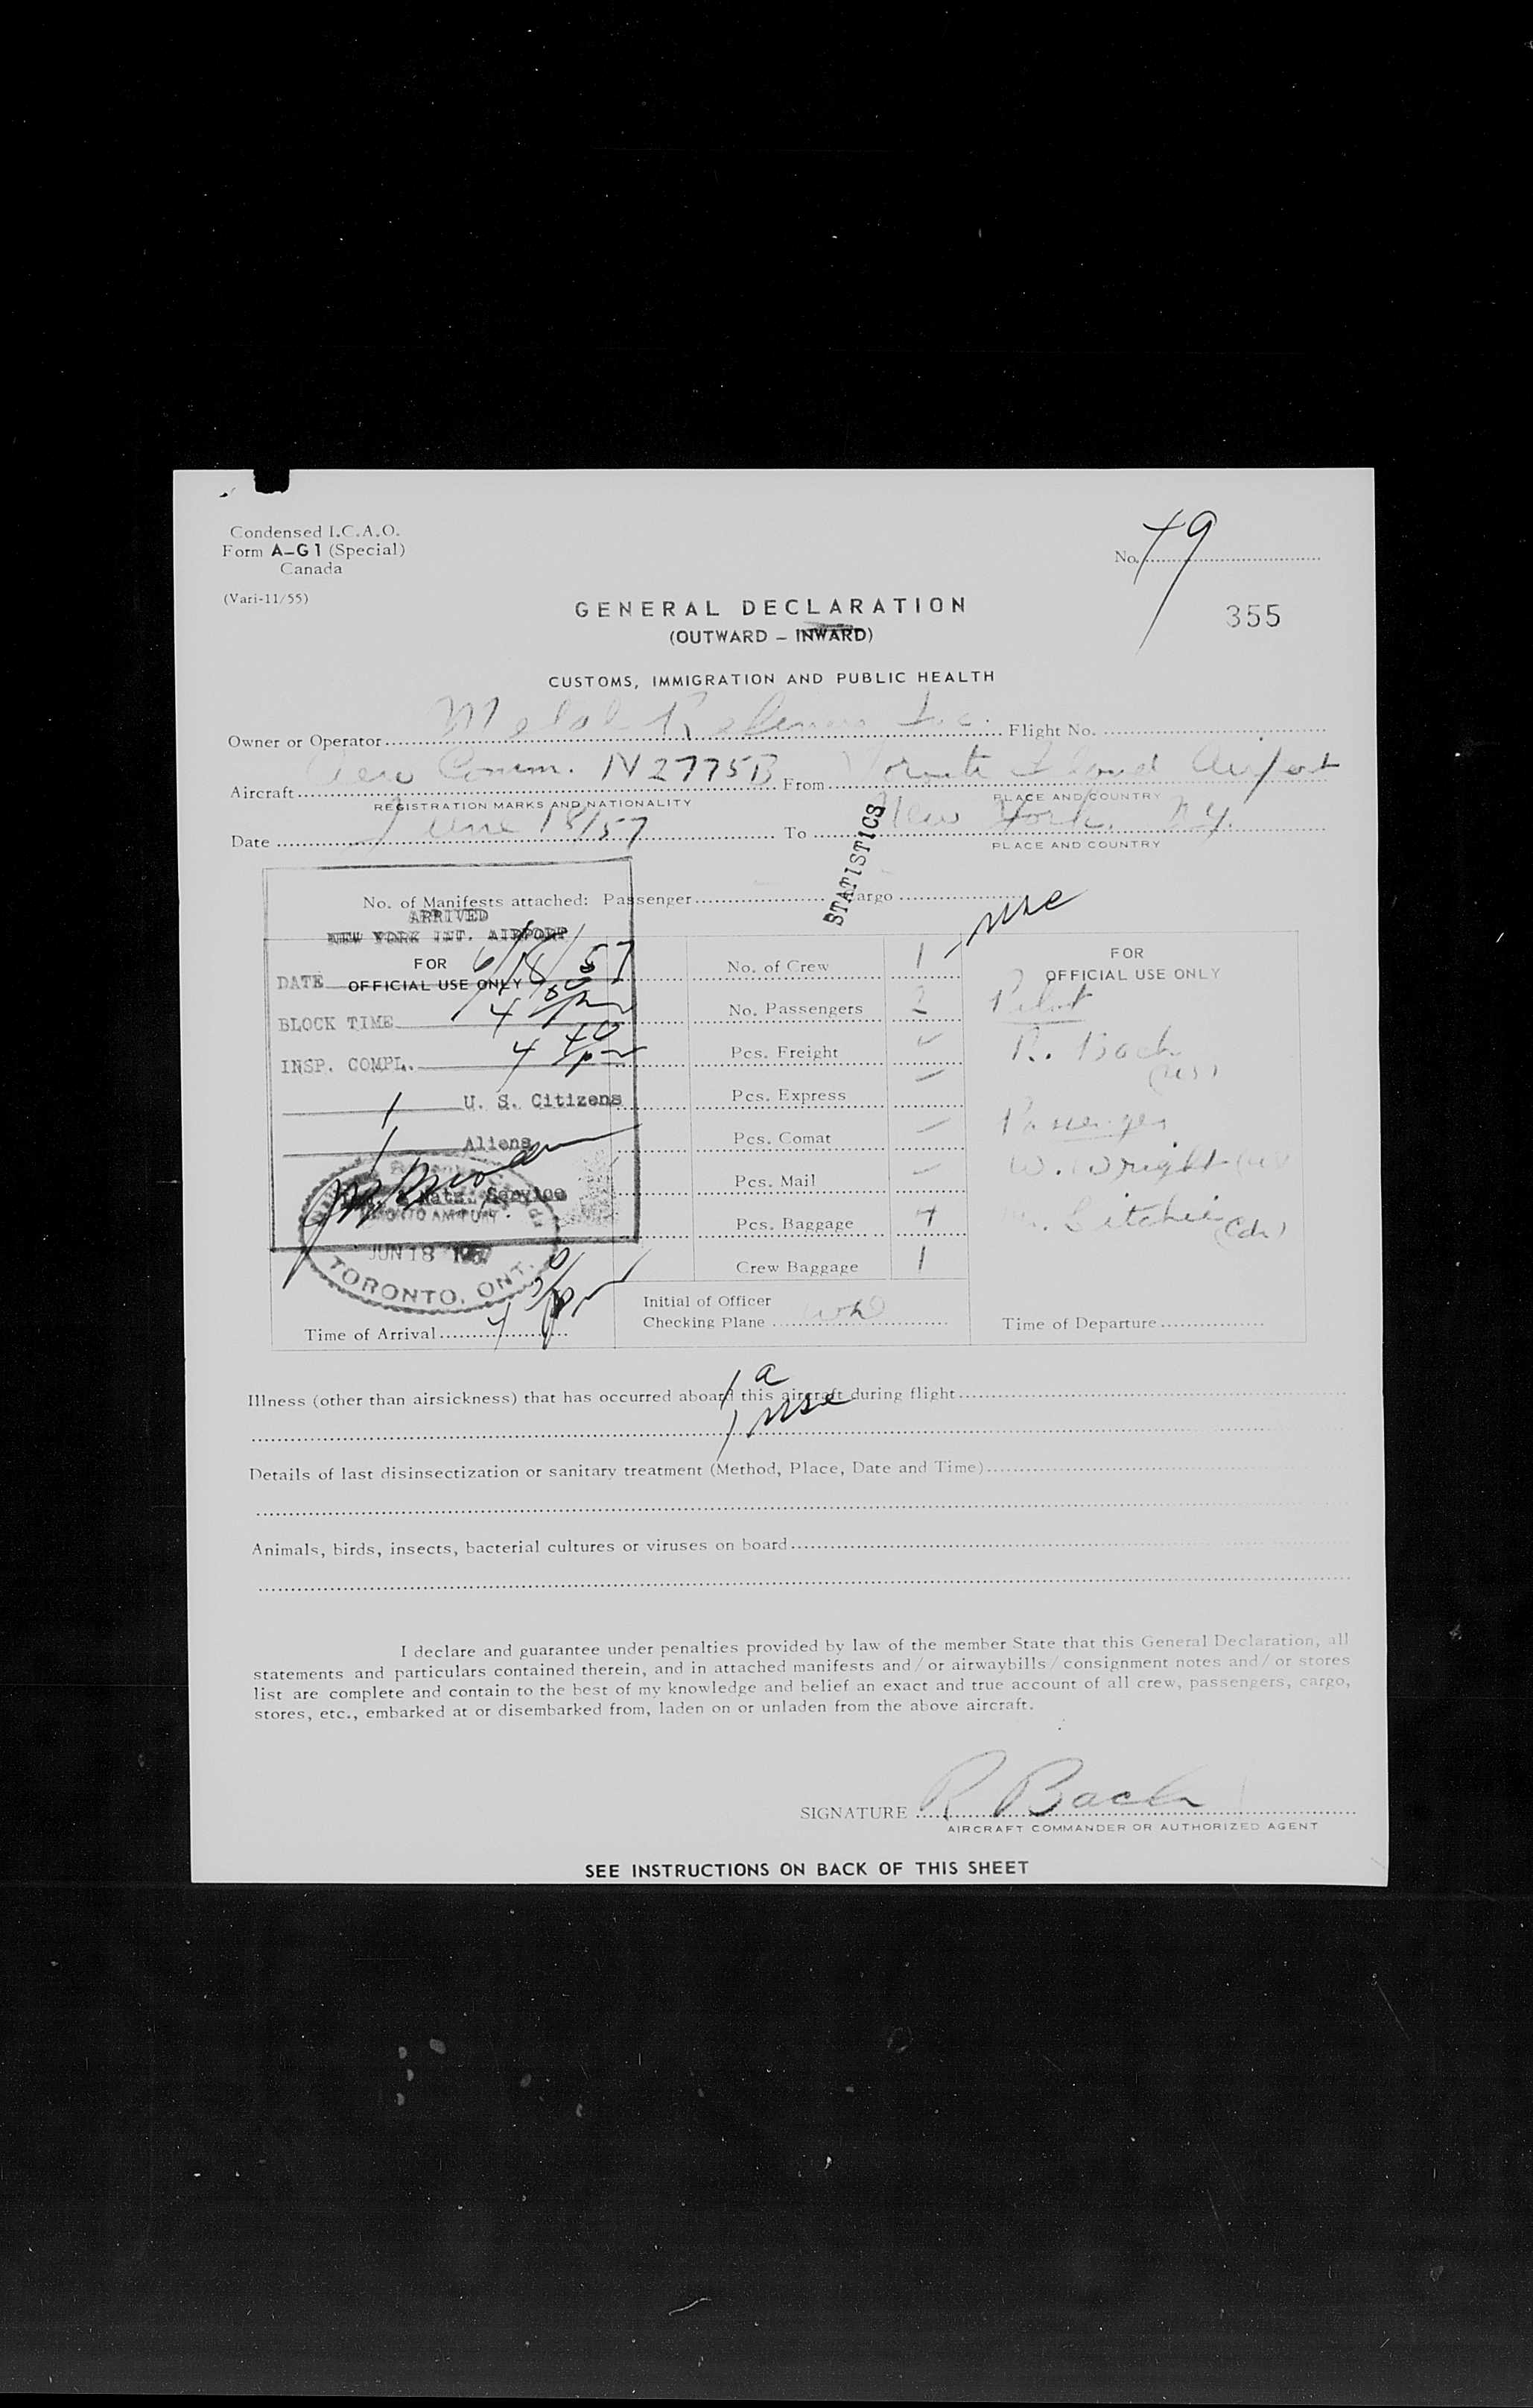 Condensed I.C.A.O.
Form A-G1 (Special)
Canada
(Vari-11/55)
No. 79
355
GENERAL DECLARATION
(OUTWARD - INWARD)
CUSTOMS, IMMIGRATION AND PUBLIC HEALTH
Owner or Operator Metal Refiners Inc. Flight No.
Aircraft Aero Comm. N2775B From Toronto Island Airport
REGISTRATION MARKS AND NATIONALITY PLACE AND COUNTRY
Date June 18/57 To New York. N.Y.
PLACE AND COUNTRY
STATISTICS
No. of Manifests attached: Passenger Cargo
ARRIVED
NEW YORK INT. AIRPORT
FOR
OFFICIAL USE ONLY
DATE 6/18/57
BLOCK TIME 4
INSP. COMPL. 4 40 pm
1 U. S. Citizens
1 Aliens
& Natz. Service
JUN 18 1957
TORONTO, ONT.
Time of Arrival
No. of Crew 1
No. Passengers 2
Pcs. Freight
Pcs. Express
Pcs. Comat
Pcs. Mail
Pcs. Baggage 4
Crew Baggage 1
Initial of Officer
Checking Plane
use
FOR
OFFICIAL USE ONLY
Pilot
R. Bach
(US)
Passenger
W. Wright
Ritchie (Cdn)
Time of Departure
1 a
1 use
Illness (other than airsickness) that has occurred aboard this aircraft during flight
Details of last disinsectization or sanitary treatment (Method, Place, Date and Time)
Animals, birds, insects, bacterial cultures or viruses on board
I declare and guarantee under penalties provided by law of the member State that this General Declaration, all
statements and particulars contained therein, and in attached manifests and/or airwaybills/consignment notes and/or stores
list are complete and contain to the best of my knowledge and belief an exact and true account of all crew, passengers, cargo,
stores, etc., embarked at or disembarked from, laden on or unladen from the above aircraft.
SIGNATURE R Bach
AIRCRAFT COMMANDER OR AUTHORIZED AGENT
SEE INSTRUCTIONS ON BACK OF THIS SHEET